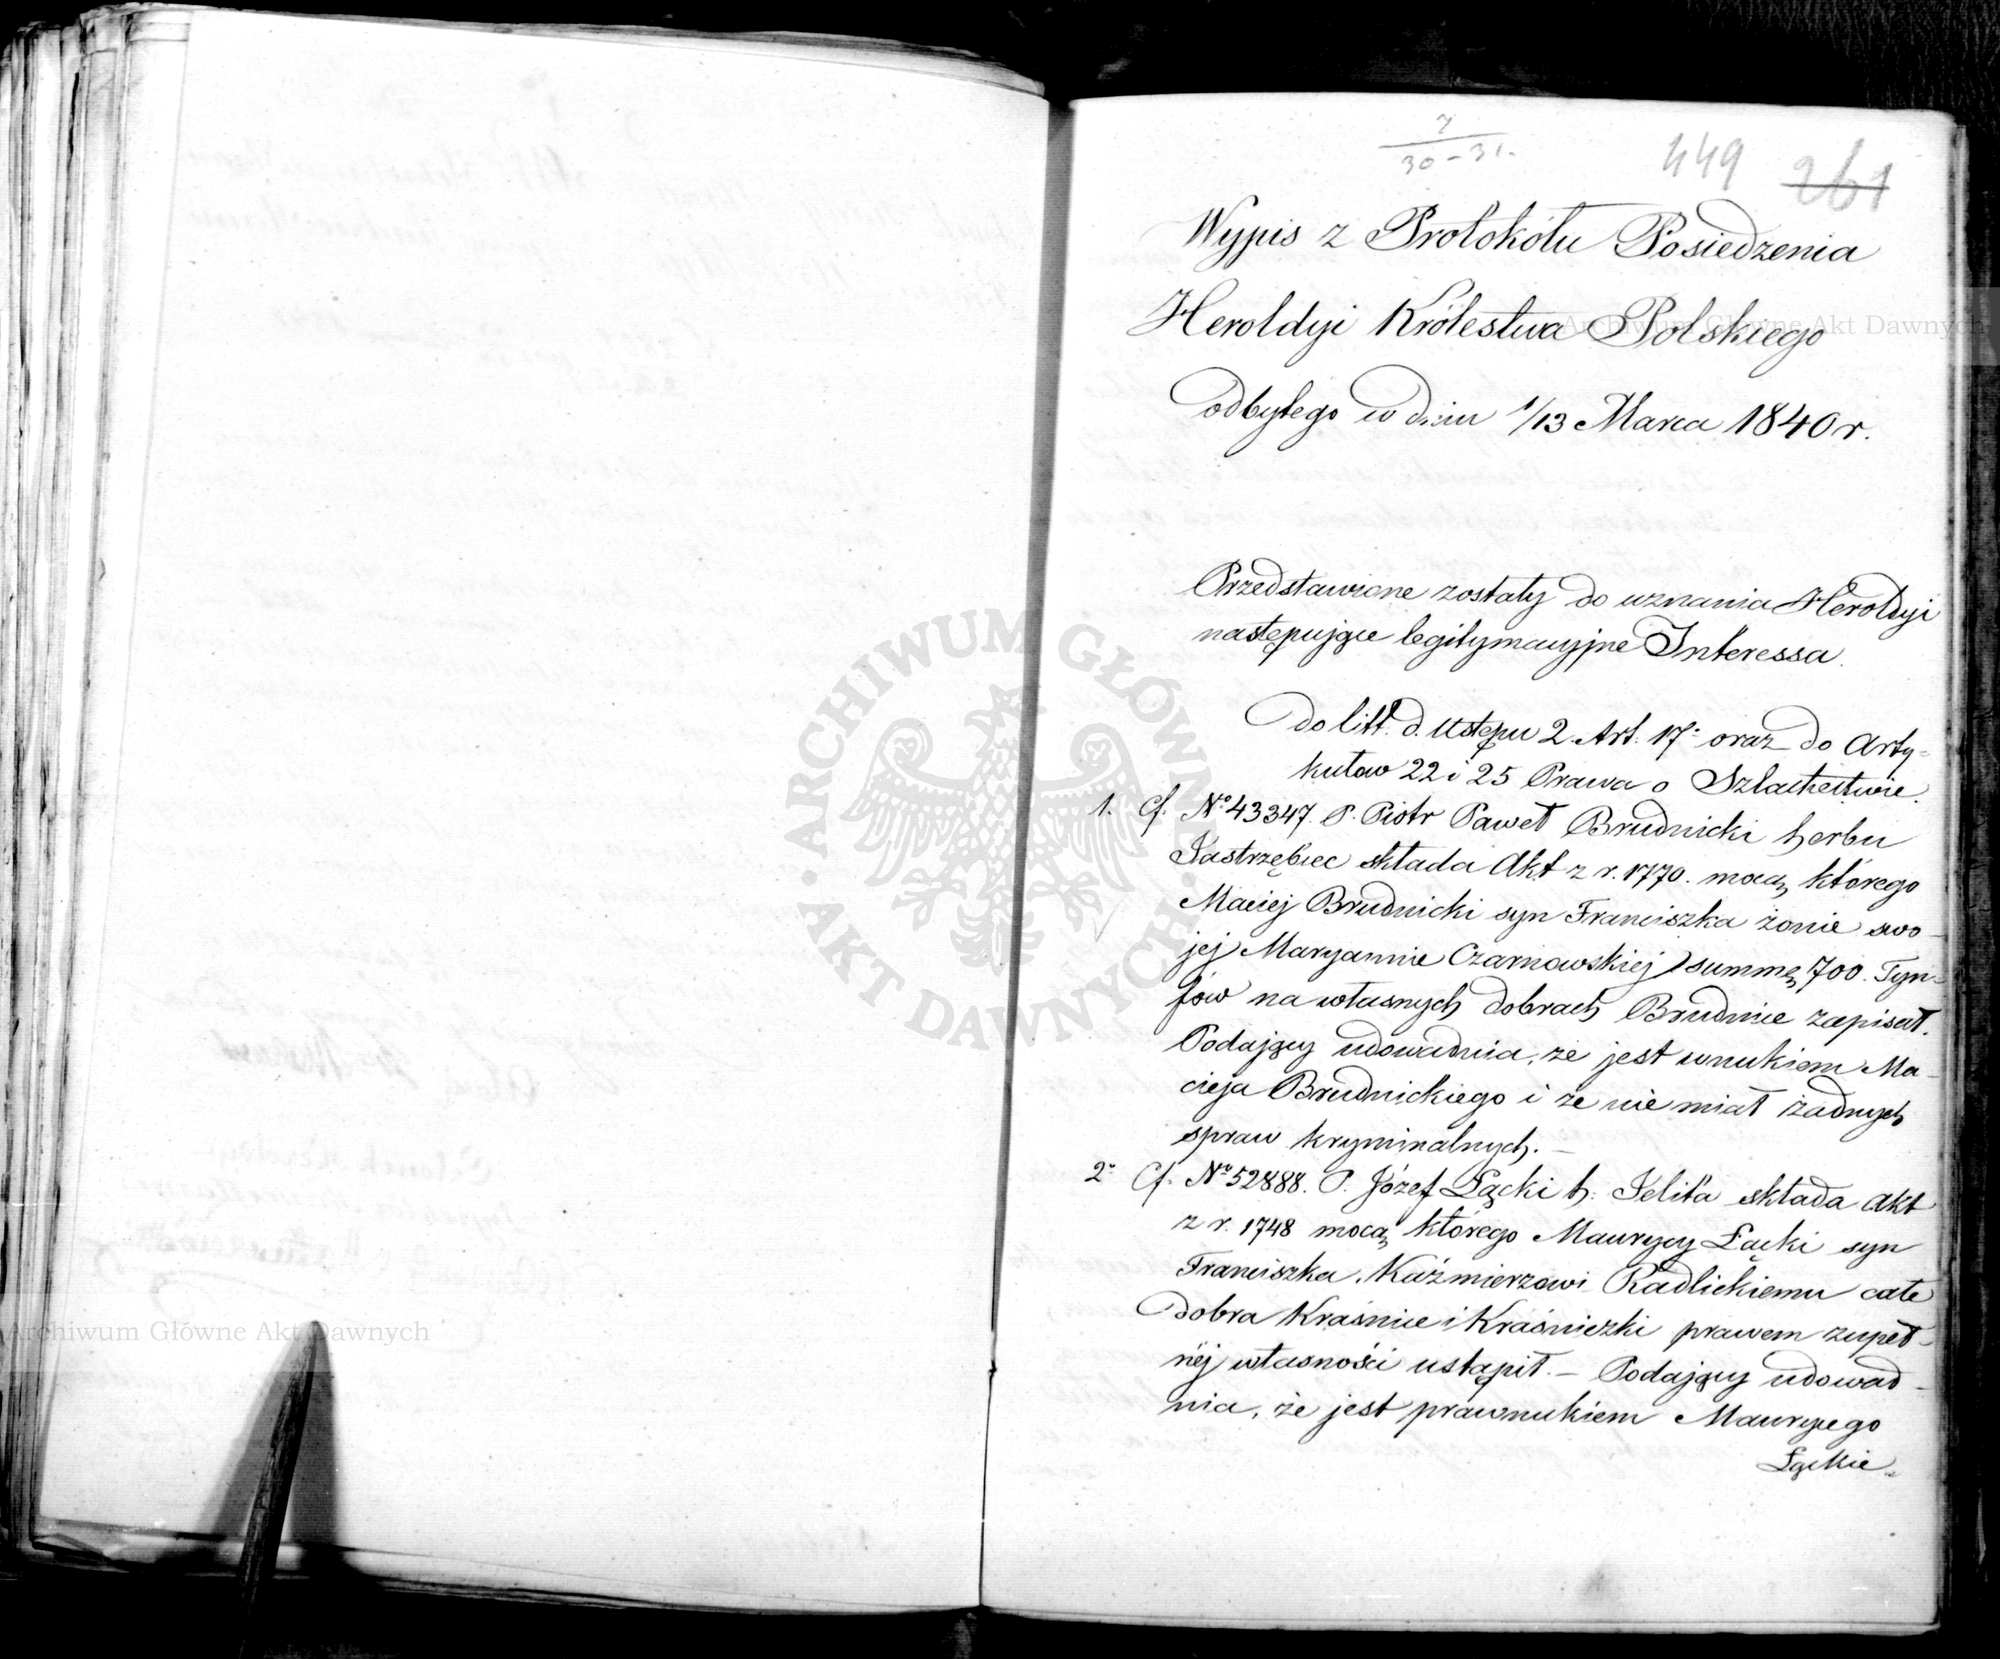 7
30-31.
449
261
Wypis z Protokółu Posiedzenia
Heroldyi Królestwa Polskiego
odbytego w dniu 1/13 Marca 1840 r.
Przedstawione zostały do uznania Heroldyi
następujące legitymacyjne Interessa.
do litt. d. Ustępu 2. Art. 17° oraz do Arty-
kułów 22 i 25 Prawa o Szlachectwie.
1. Cf. N° 43347. P. Piotr Paweł Brudnicki herbu
Jastrzębiec składa Akt z r. 1770. mocą którego
Maciej Brudnicki syn Franciszka żonie swo-
jej Maryannie Czarnowskiej summę 700. Tyn-
fów na własnych dobrach Brudnice zapisał.
Podający udowadnia, że jest wnukiem Ma-
cieja Brudnickiego i że nie miał żadnych
spraw kryminalnych. —
2° Cf. N° 52888. P. Józef Łącki h. Jelita składa Akt
z r. 1748 mocą którego Maurycy Łącki syn
Franciszka, Kaźmierzowi Radlickiemu całe
dobra Kraśnice i Kraśniczki prawem zupeł-
néj własności ustąpił. — Podający udowad-
nia, że jest prawnukiem Maurycego
Łąckie-
ARCHIWUM GŁÓWNE AKT DAWNYCH
Archiwum Główne Akt Dawnych
Archiwum Główne Akt Dawnych